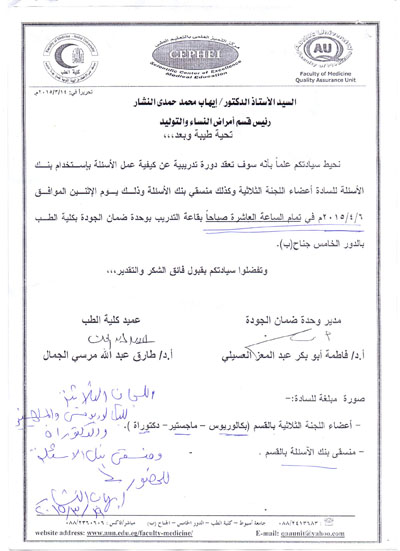 مركز التميز العلمي بالتعليم الطبي
CEPHEI
Scientific Center of Excellence
Medical Education
كلية الطب
AU
Faculty of Medicine
Quality Assurance Unit
تحريراً في: ٢٠١٥/٣/١٤م
السيد الأستاذ الدكتور / إيهاب محمد حمدى النشار
رئيس قسم أمراض النساء والتوليد
تحية طيبة وبعد،،،
نحيط سيادتكم علماً بأنه سوف تعقد دورة تدريبية عن كيفية عمل الأسئلة بإستخدام بنك
الأسئلة للسادة أعضاء اللجنة الثلاثية وكذلك منسقي بنك الأسئلة وذلك يوم الإثنين الموافق
٢٠١٥/٤/٦م في تمام الساعة العاشرة صباحاً بقاعة التدريب بوحدة ضمان الجودة بكلية الطب
بالدور الخامس جناح(ب).
وتفضلوا سيادتكم بقبول فائق الشكر والتقدير،،،
مدير وحدة ضمان الجودة
عميد كلية الطب
أ.د/ فاطمة أبو بكر عبد المعز العسيلي
أ.د/ طارق عبد الله مرسي الجمال
صورة مبلغة للسادة:-
- أعضاء اللجنة الثلاثية بالقسم (بكالوريوس – ماجستير – دكتوراة ).
- منسقى بنك الأسئلة بالقسم .
اللجان الثلاثية
للبكالوريوس والماجستير
والدكتوراة
ومنسقى بنك الاسئلة
للحضور
إيهاب النشار
جامعة أسيوط – كلية الطب – الدور الخامس – الجناح (ب)
website address: www.aun.edu.eg/faculty-medicine/
E-mail: qaaunit@yahoo.com